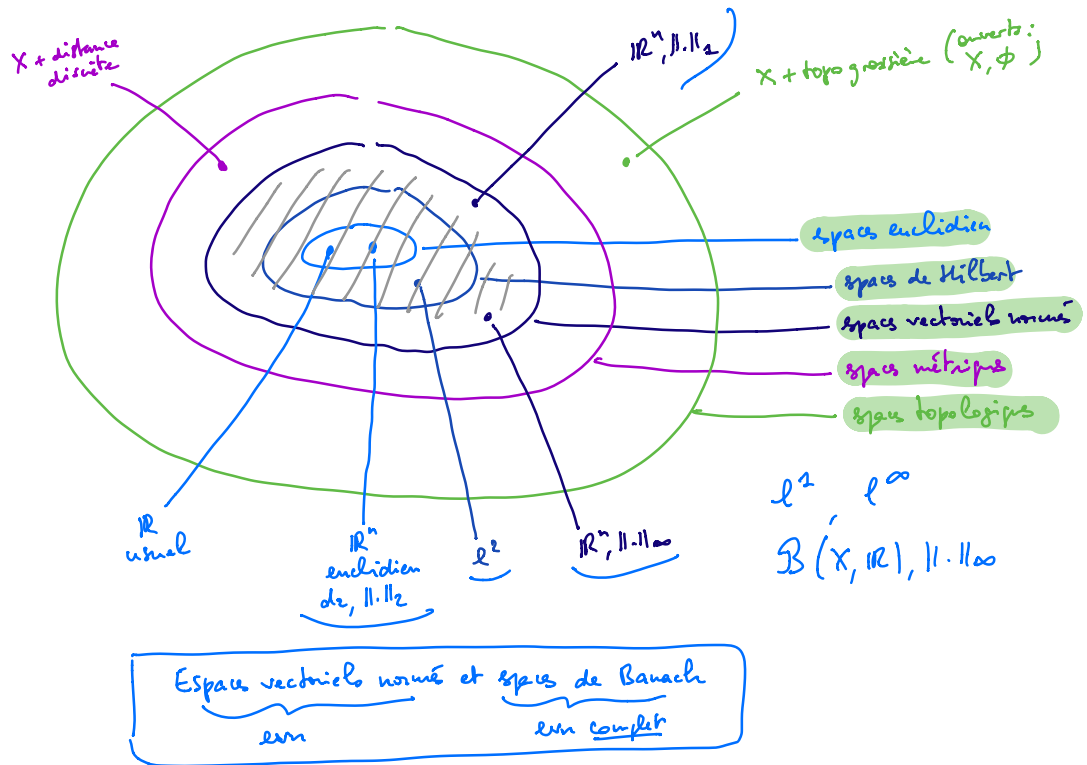 X + distance
discrète
ℝⁿ, ||.||₁
X + topo grossière (ouverts :
X, ∅)
espaces euclidien
espaces de Hilbert
espaces vectoriels normés
espaces métriques
espaces topologiques
ℝ
usuel
ℝⁿ
euclidien
d₂, ||.||₂
ℓ²
ℝⁿ, ||.||∞
ℓ¹ ℓ^∞
B(X, ℝ), ||.||∞
Espaces vectoriels normés et espaces de Banach
evn
evn complet